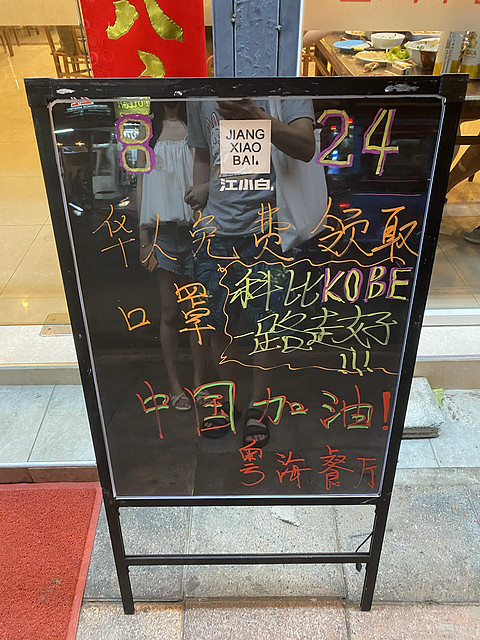 8
24
JIANG
XIAO
BAI.
江小白
华人免费领取
口罩
科比KOBE
一路走好
!!!
中国加油!
粤海餐厅